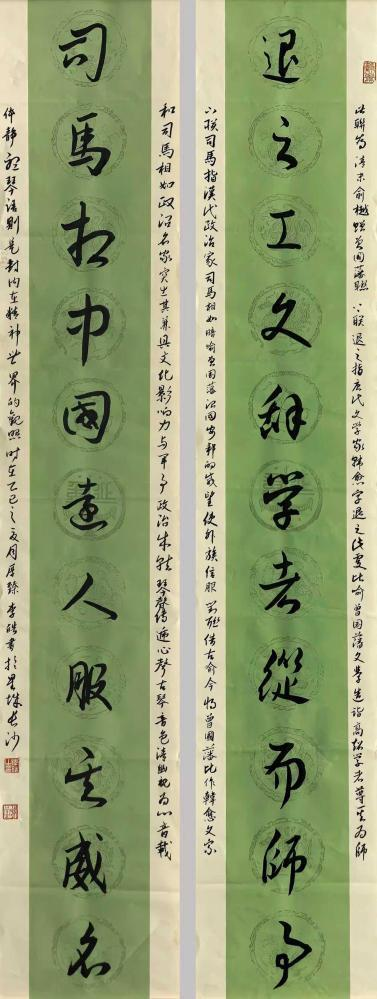 此聯為清末俞樾赠曾国藩联 上联退之指唐代文学家韩愈字退之 比喻曾国藩文学造诣高超学者尊其为师
退之工文辞学者從而師事
下联司马指汉代政治家司马相如暗喻曾国藩治国安邦的威望使外族信服 联借古喻今将曾国藩比作韩愈文家
和司马相如政治名家突出其兼具文化影响力与军事政治成就 琴声传递心声古琴音色清幽视为心音载
司馬相中國遠人服其威名
体静 琴语则是对内在精神世界的观照时在乙巳之夏月 李皓书於星城长沙